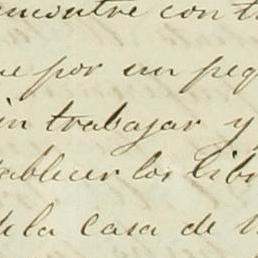 encontre con t
ue por un peq
in trabajar y
tablecer los libr
de la casa de